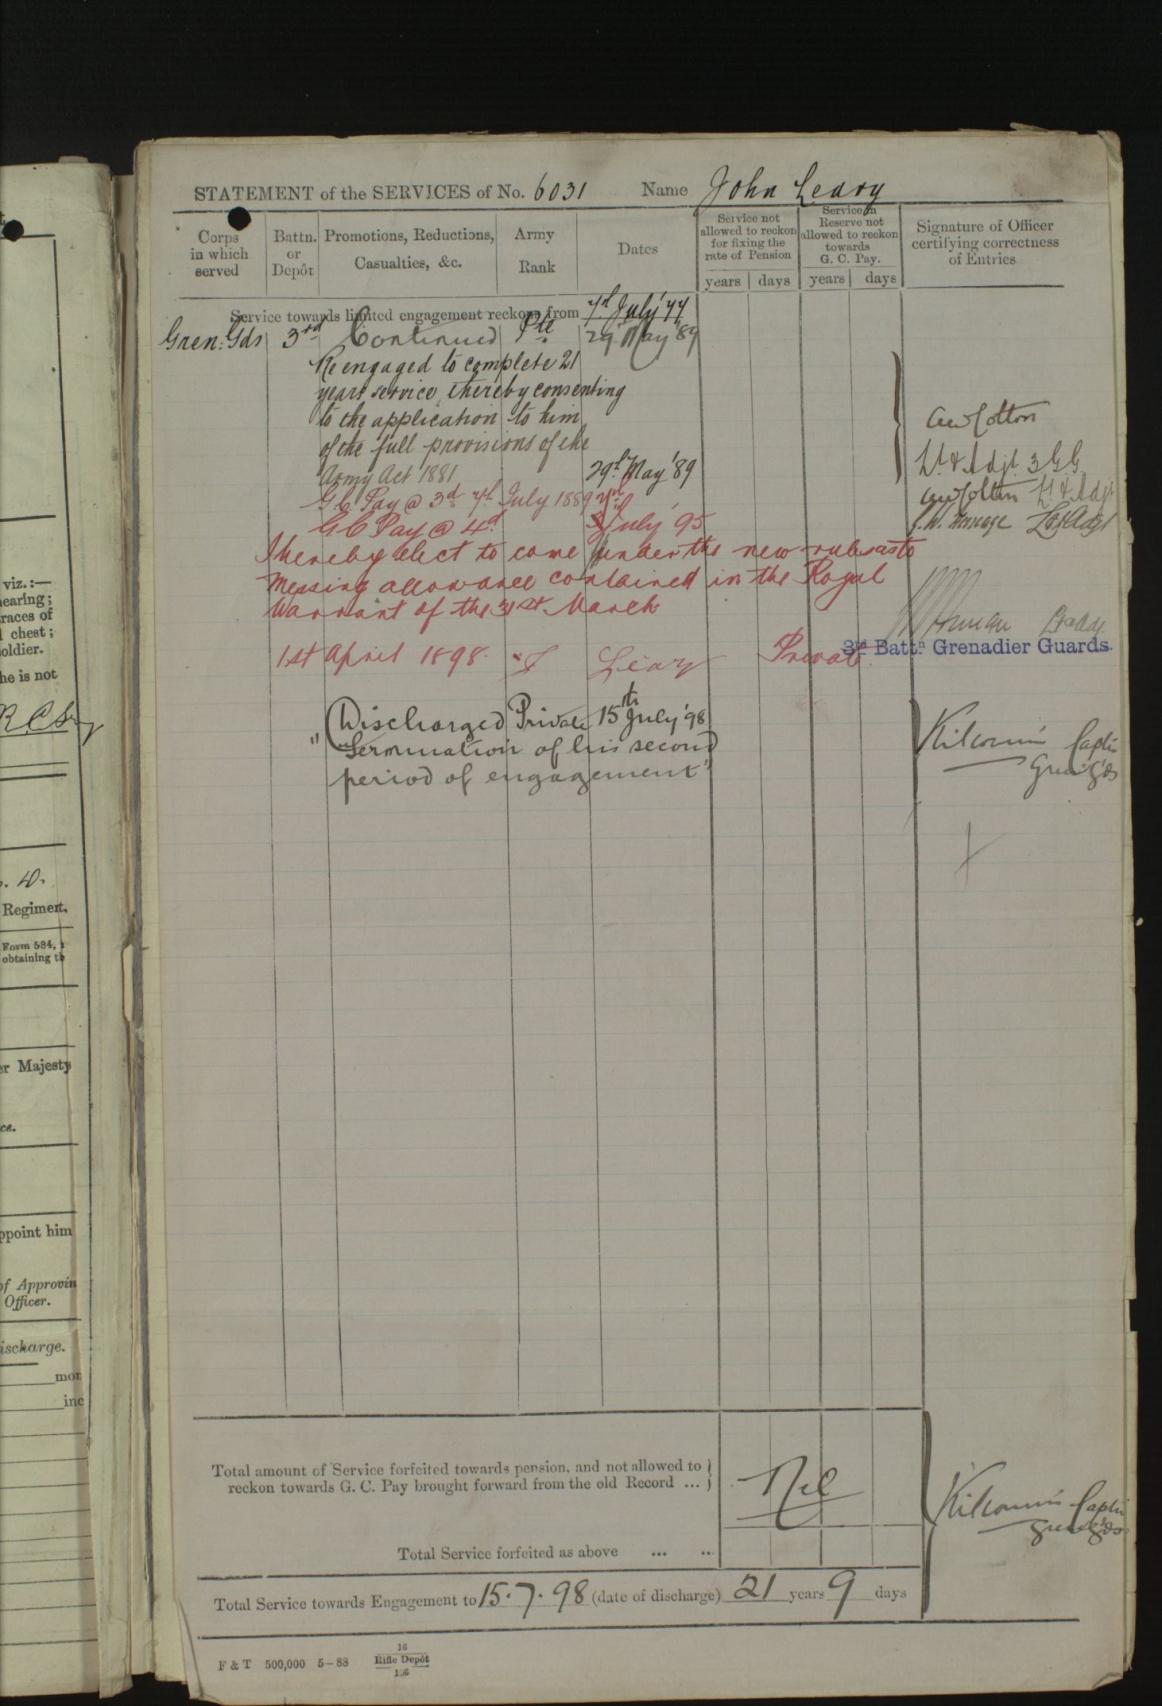 STATEMENT of the SERVICES of No. 6031 Name John Leary
Corps in which served
Battn. or Depôt
Promotions, Reductions, Casualties, &c.
Army Rank
Dates
Service not allowed to reckon for fixing the rate of Pension
years days
Service in Reserve not allowed to reckon towards G. C. Pay.
years days
Signature of Officer certifying correctness of Entries
Service towards limited engagement reckons from 7th July '77
Gren: Gds 3rd Continued Pte 29th May '89
Re engaged to complete 21
years service, thereby consenting
to the application to him
of the full provisions of the
Army Act 1881 29th May '89
Lt & Adjt 3 G G
G C Pay @ 3d 7th July 1889
Lt & Adjt
G C Pay @ 4d July '95
I hereby elect to come under the new rules as to
Messing allowance contained in the Royal
Warrant of the 31st March
1st April 1898. Leary Private
3rd Battn Grenadier Guards.
Discharged Private 15th July '98
"Termination of his second
period of engagement"
Kilcoursie Captn
Gren: Gds
Total amount of Service forfeited towards pension, and not allowed to
reckon towards G. C. Pay brought forward from the old Record ...
Nil
Kilcoursie Captn
Gren: Gds
Total Service forfeited as above ... ...
Total Service towards Engagement to 15.7.98 (date of discharge) 21 years 9 days
F & T 500,000 5—88
16
Rifle Depôt
viz.:—
hearing;
races of
chest;
oldier.
he is not
Regiment.
Form 584,
obtaining th
er Majesty
ce.
ppoint him
of Approvin
Officer.
ischarge.
mon
inc